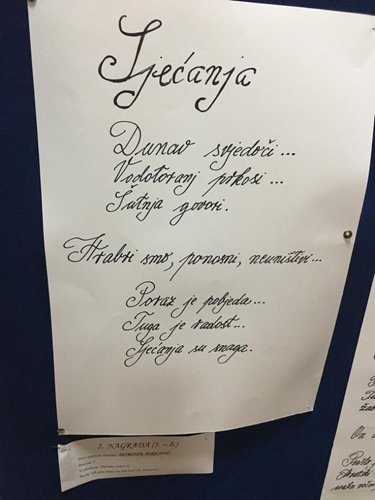 Sjećanja
Dunav svjedoči...
Vodotoranj prkosi...
Šutnja govori.
Hrabri smo, ponosni, neuništivi...
Poraz je pobjeda...
Tuga je radost...
Sjećanja su snaga.
2. NAGRADA (5. – 8.)